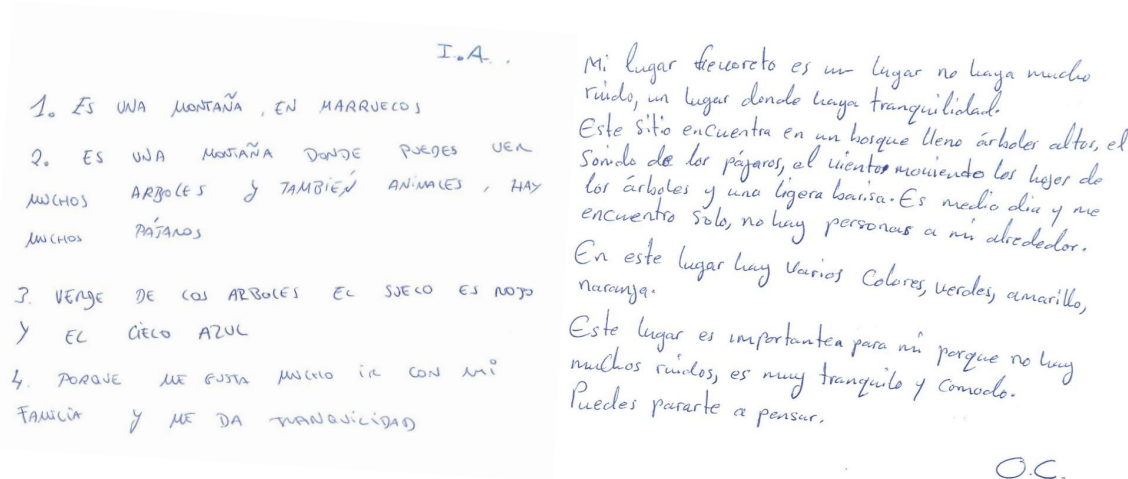 I.A..
1. ES UNA MONTAÑA, EN MARRUECOS
2. ES UNA MONTAÑA DONDE PUEDES VER
MUCHOS ARBOLES y TAMBIÉN ANIMALES, HAY
MUCHOS PÁJAROS
3. VERDE DE LOS ARBOLES EL SUELO ES ROJO
Y EL CIELO AZUL
4. PORQUE ME GUSTA MUCHO ir CON mi
FAMILIA y ME DA TRANQUILIDAD
Mi lugar fievoreto es un lugar no haya mucho
ruido, un lugar donde haya tranquilidad.
Este sitio encuentra en un bosque lleno árboles altos, el
sonido de los pájaros, el viento moviendo las hojas de
los árboles y una ligera barisa. Es medio dia y me
encuentro solo, no hay personas a mi alrededor.
En este lugar hay varios colores, verdes, amarillo,
naranja.
Este lugar es importantea para mi porque no hay
muchos ruidos, es muy tranquilo y comodo.
Puedes pararte a pensar.
O.C.